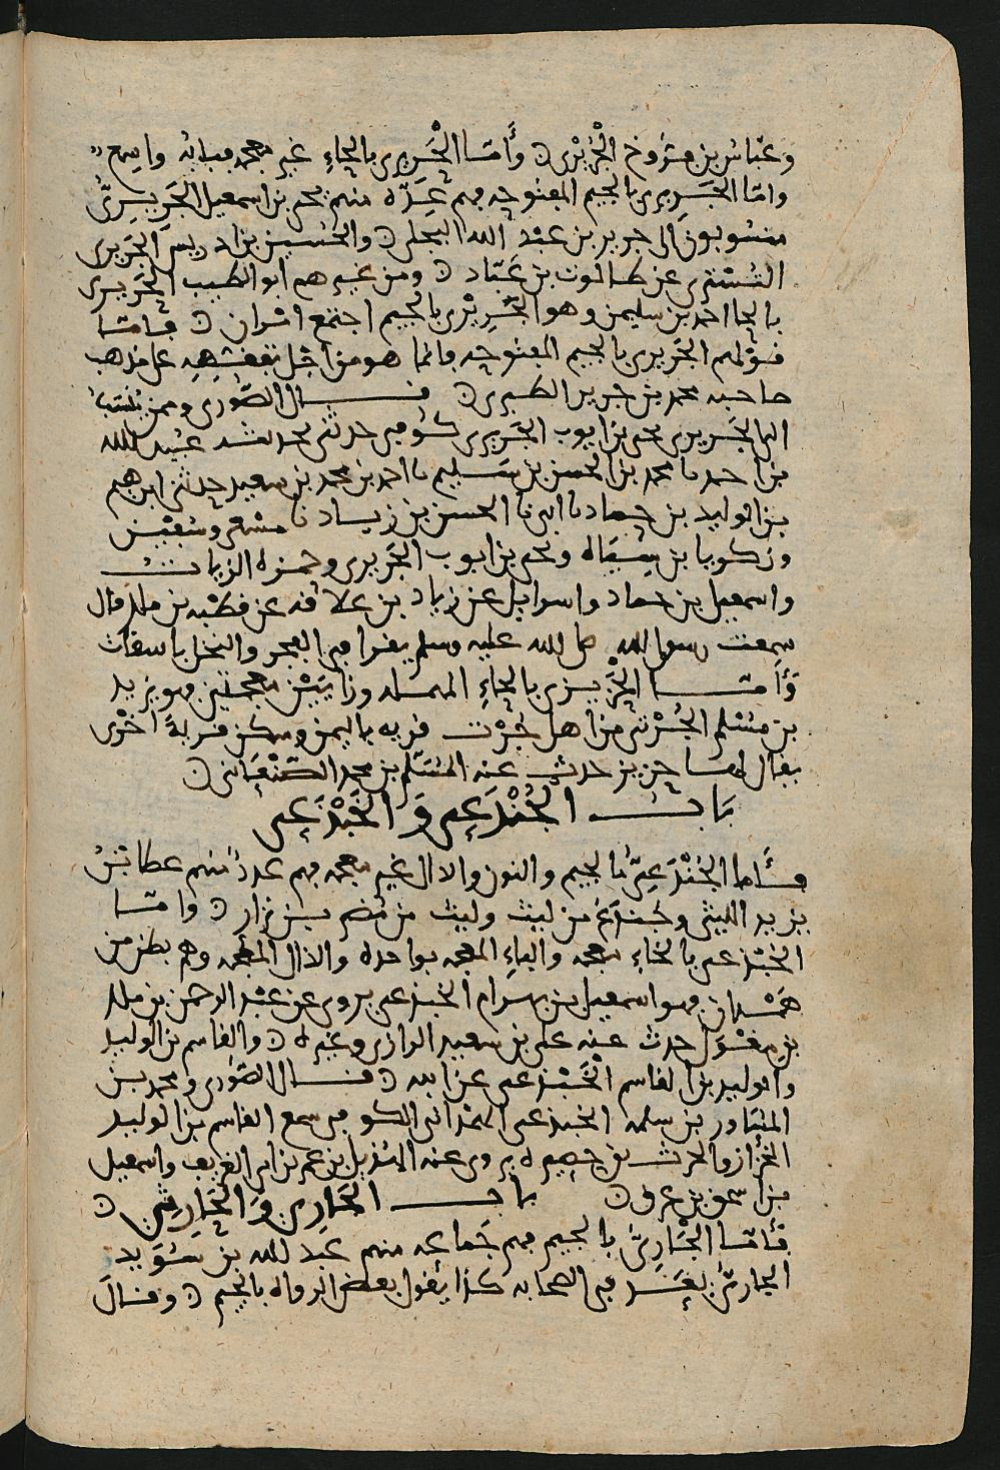 وعباس بن فروخ الجُريْري ۞ وأمّا الحَرِيري بالحاءِ غير معجمه فبابه واسع
وامّا الجَرِيري بالجيم المفتوحه فهم عِدّه منهم يحيى بن اسمعيل الجَرِيريُّ
منسوبون الى جرير بن عبد الله البجلي ۞ والحُسين بن ادريس الجَريري
التُسْتري عن طالوت بن عَبّاد ۞ ومن غيرهم ابو الطيب الحَريري
بالحا احمد بن سليمن وهو الجَرِيْري بالجيم اجتمع امران ۞ فامّا
قولهم الجَريري بالجيم المفتوحه فانما هو من اجل تفقهِهِ على مذهب
صاحبه محمد بن جرير الطبري ۞ قال الصّوري وممن يُنسَبُ
الى الجَريري يحيى بن ايوب الجَريري كُوفي حدثني محمد نفسه عُبيد الله
بن احمد نا محمد بن الحسن بن سَليم نا احمد بن محمد بن سعيد حدثني ابرهيم
بن الوليد بن حماد نا ابي نا الحسن بن زياد نا مِسْعر وسُفيٰن
وزكريا بن سِيَاه ويحيى بن ايوب الجَريري وحمزه الزيات
واسمعيل بن حماد واسرايل عن زياد بن علاقه عن قُطْبه بن ملك قال
سمعت رسول الله صلى الله عليه وسلم يقرا في الفجر والنخل باسقات
فأمّا الحِزْيَزي بالحاءِ المهمله وزاييَيْن معجمتين فهو يزيد
بن مُسْلم الجُرْتي من اهل جُرْت قريه باليمن وسكن قريةً اخْرى
يقال لها حِزيز حدث عنه المُسَلّم بن محمد الصَّنْعَاني ۞
بَابُ الجُنْدَعِي وَالخَبْذَعِي
فأما الجُنْدَعِيّ بالجيم والنون والدال غير معجمه فهم عددٌ منهم عطا بنُ
يزيد الليثي وجُندَعُ من ليث وليث من مُضر بن نزار ۞ وامّا
الخَبْذعي بالخاءِ معجمه والباءِ المعجمه بواحده والذال المعجمه وهم بطن من
هَمْدان فهو اسمعيل بن بهرام الخبذعي يروي عن عبْد الرحمن بن ملك
بن مغْوَل حدث عنه علي بن سعيد الرازي وغيره ۞ والقاسم بن الوليد
والوليد بن القاسم الخَبْذعي عن ابيه ۞ قال الصّوري ومحمد بن
المُساور بن سلمه الخبذعي الهمْداني الكوفي سمع القاسم بن الوليد
الخزاز والحرث بن حصيره يروي عنه الهُذيل بن عمير بن ابي الغريف واسمعيل
بن اسحق بن عرق ۞ باب الجَاري وَالحَارِثِي ۞
فأمّا الجَارِيّ بالجيم فهم جَماعه منهم عَبد لله بن سُوَيد
الجاريّ يُعَد في الصحابه كذا يقول بعض الرواه بالجيم ۞ وقالَ